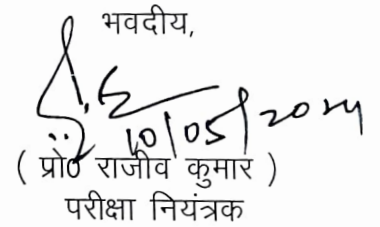 भवदीय,
10/05/2024
( प्रो० राजीव कुमार )
परीक्षा नियंत्रक